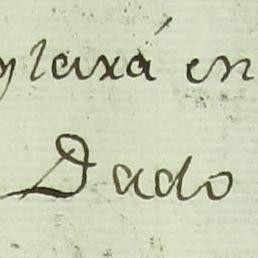 ylará en
Dado